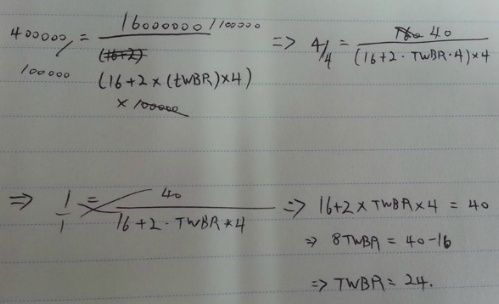 400000/100000 = 16000000 / 100000 / (16+2×(TWBR)×4) × 100000 ⇒ 4/4 = 40 / (16+2·TWBR·4)×4
⇒ 1/1 = 40 / 16+2·TWBR×4 ⇒ 16+2×TWBR×4 = 40
⇒ 8TWBR = 40-16
⇒ TWBR = 24.